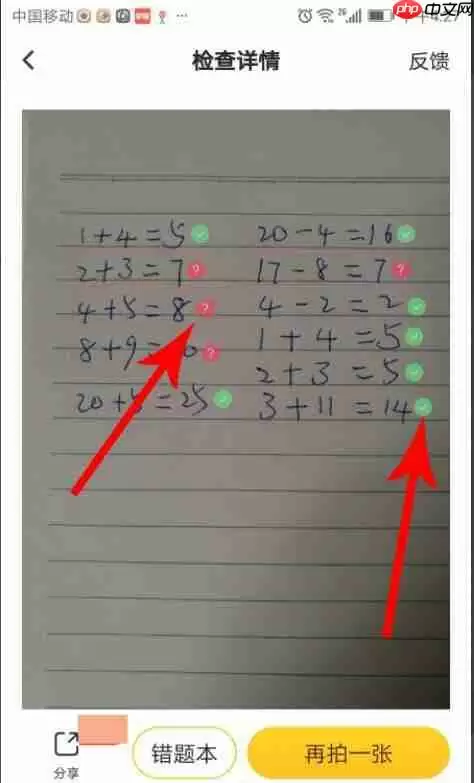 中国移动 2G 4:27
php 中文网
检查详情 反馈
1+4=5 20-4=16
2+3=7 ? 17-8=7 ?
4+5=8 ? 4-2=2
8+9= 0 ? 1+4=5
2+3=5
20+5=25 3+11=14
分享 错题本 再拍一张